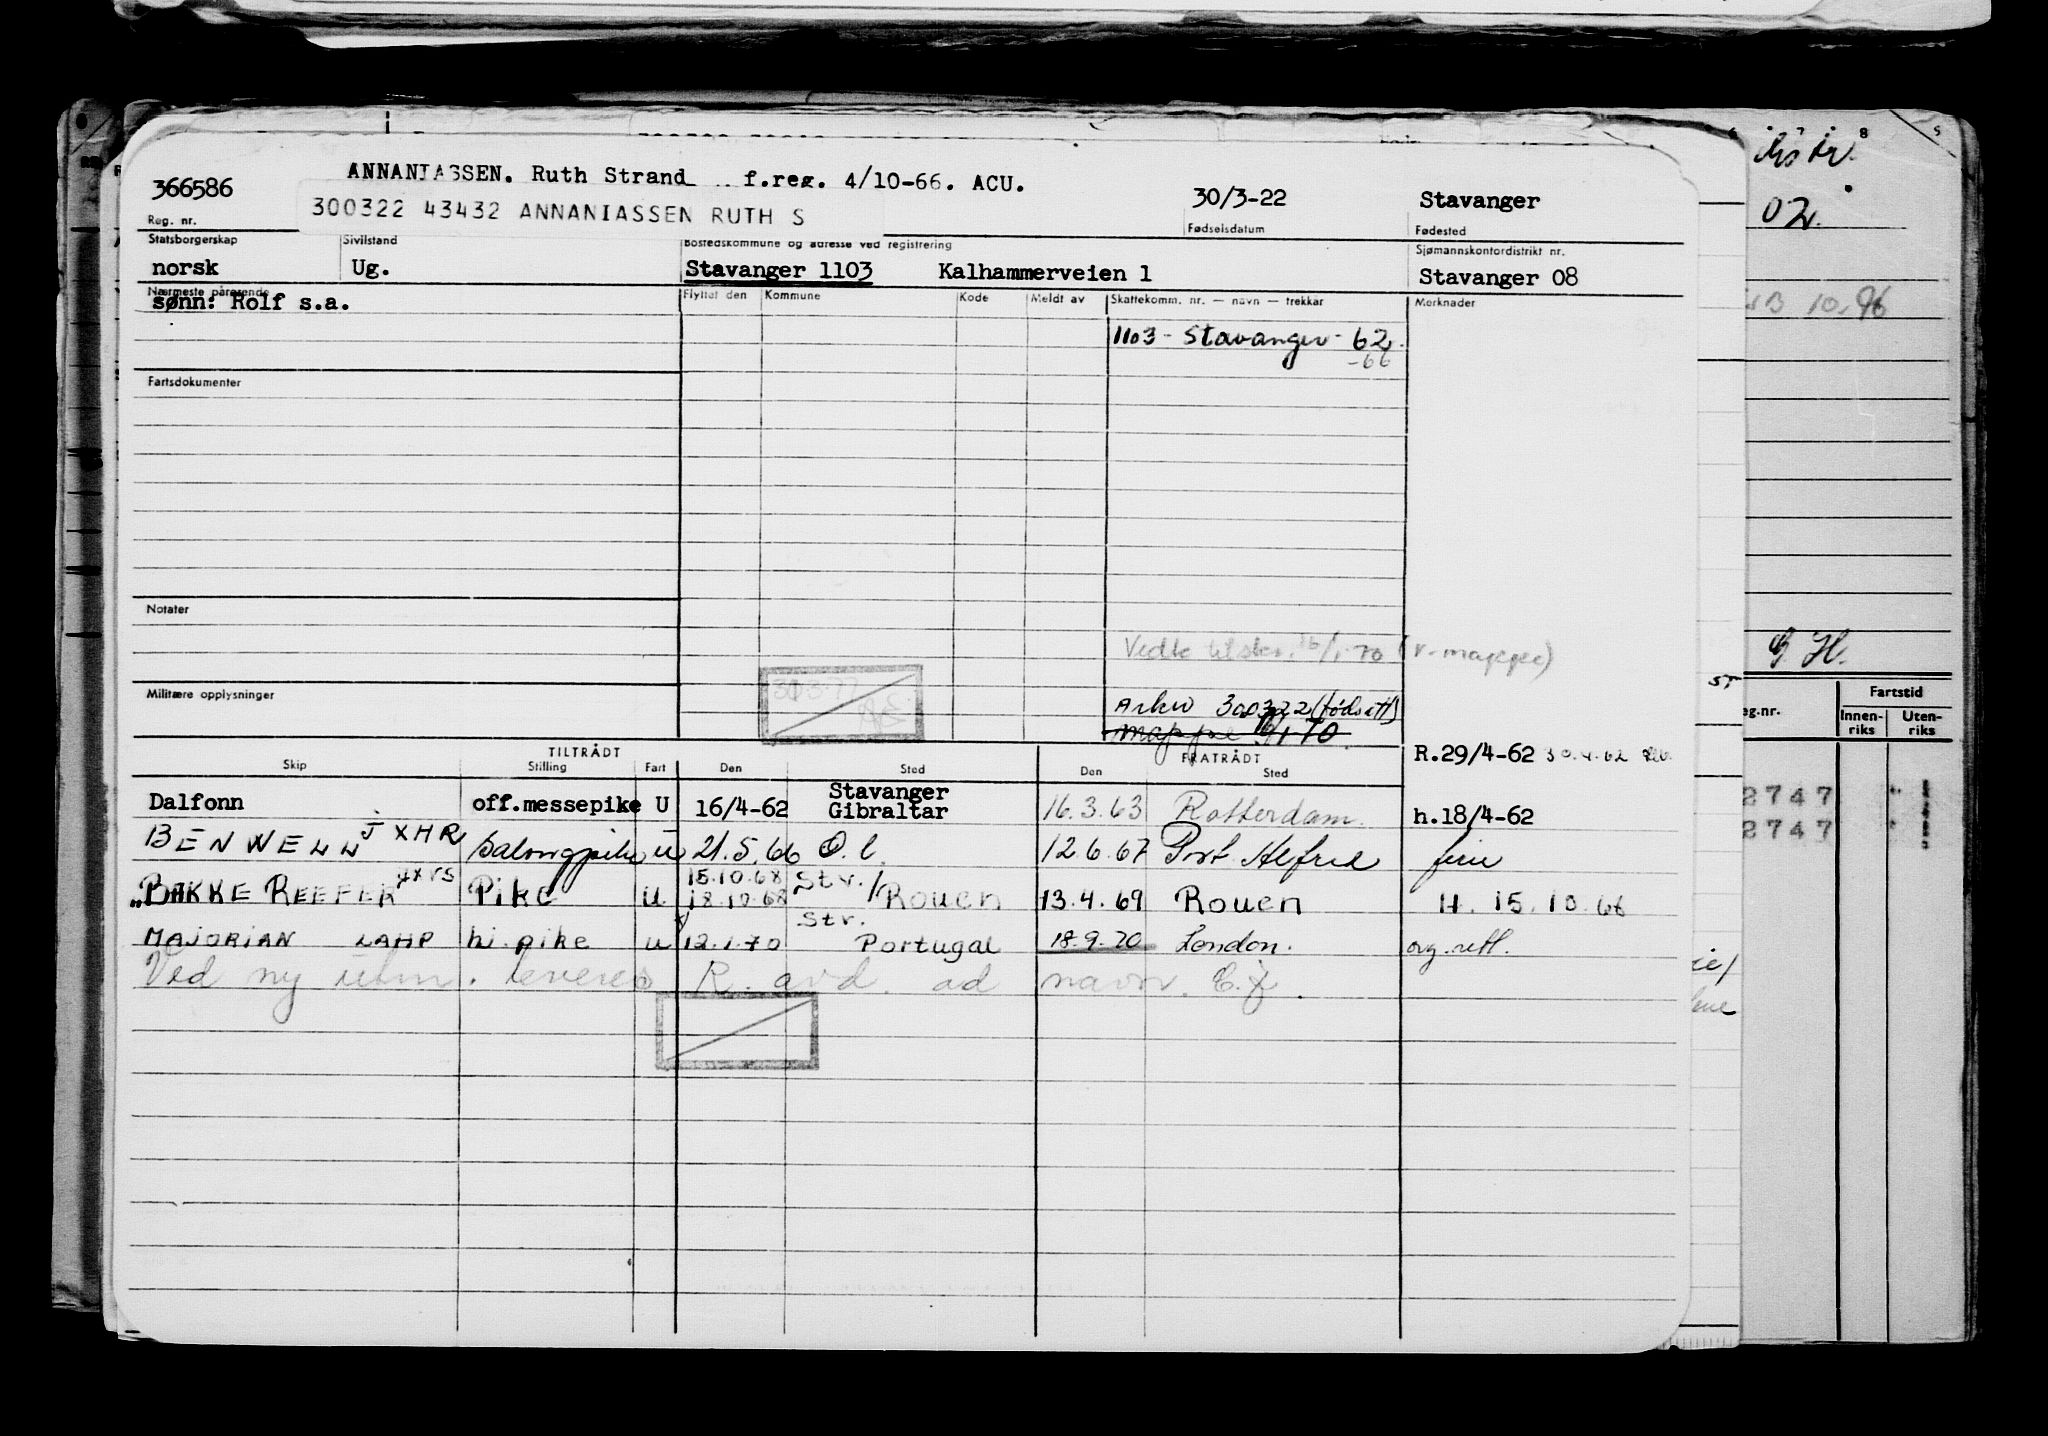 366586 ANNANIASSEN. Ruth Strand f.reg. 4/10-66. ACU. 30/3-22 Stavanger
300322 43432 ANNANIASSEN RUTH S
Reg. nr. Fødselsdatum Fødested
Statsborgerskap Sivilstand Bostedskommune og adresse ved registrering Sjømannskontordistrikt nr.
norsk Ug. Stavanger 1103 Kalhammerveien 1 Stavanger 08
Nærmeste pårørende Flyttet den Kommune Kode Meldt av Skattekomm. nr. — navn — trekkår Merknader
sønn: Rolf s.a.
1103 - Stavanger - 62.
-66
Fartsdokumenter
Notater
Vedk tilskr. 16/1-70 (v. mappe)
30 3.77
Militære opplysninger
Arkiv 300322 (føds.att)
mappe 16/1 70
TILTRÅDT FRATRÅDT R.29/4-62 30.4.62
Skip Stilling Fart Den Sted Den Sted
Dalfonn off.messepike U 16/4-62 Stavanger Gibraltar 16.3.63 Rotterdam. h.18/4-62
BENWELL JXHR Salongpike U 21.5.66 O.l. 12.6.67 Port Alfred
BAKKE REEFER Pike U 15.10.68 18.10.68 Str./Rouen 13.4.69 Rouen H. 15.10.68
MAJORIAN LAMP hj. pike U 12.1.70 Str. Portugal 18.9.70 London.
Ved ny utm. leveres R. avd. ad navn.
02.
10.96
G H.
Fartstid
eg.nr. Innen-riks Uten-riks
2747
2747